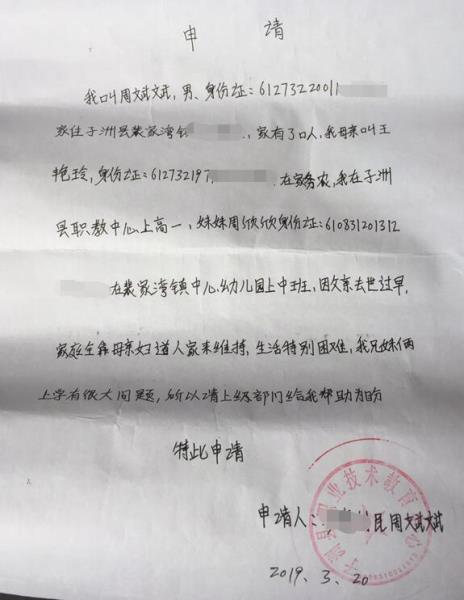 申 请
我叫周斌斌,男、身份证:61273220011
家住子洲县裴家湾镇,家有3口人,我母亲叫王
艳玲,身份证:612732197,在家务农,我在子洲
县职教中心上高一,妹妹周欣欣身份证:610831201312
在裴家湾镇中心幼儿园上中班,因父亲去世过早,
家庭全靠母亲妇道人家来维持,生活特别困难,我兄妹俩
上学有很大问题,所以请上级部门给我帮助为盼
特此申请
申请人: 周斌斌
子洲县职业技术教育中心
2019、3、20